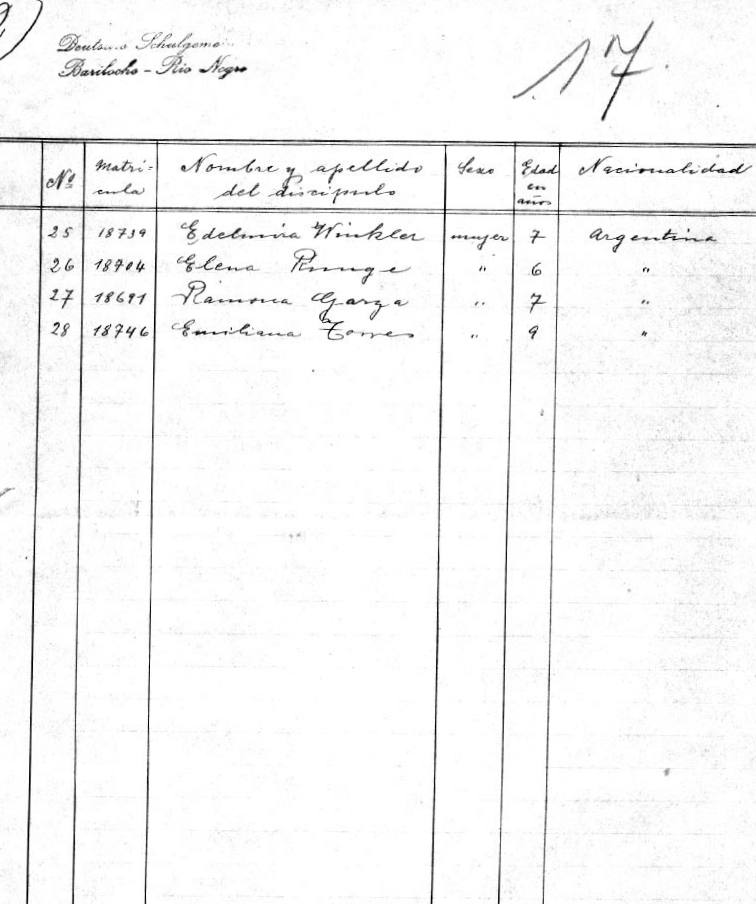 Schulgeme
Bariloche - Rio Negro
17
Nº Matri- Nombre y apellido Sexo Edad Nacionalidad
cula del discipulo en
años
25 18739 Edelmira Winkler mujer 7 Argentina
26 18704 Elena Runge " 6 "
27 18691 Ramona Garza " 7 "
28 18746 Emiliana Torres " 9 "